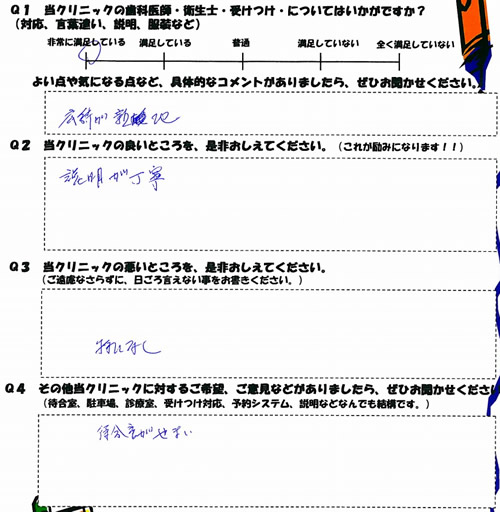 Q1 当クリニックの歯科医師・衛生士・受けつけ・についてはいかがですか?
(対応、言葉遣い、説明、服装など)
非常に満足している 満足している 普通 満足していない 全く満足していない
よい点や気になる点など、具体的なコメントがありましたら、ぜひお聞かせください。
Q2 当クリニックの良いところを、是非おしえてください。(これが励みになります!!)
説明が丁寧
Q3 当クリニックの悪いところを、是非おしえてください。
(ご遠慮なさらずに、日ごろ言えない事をお書きください。)
特になし
Q4 その他当クリニックに対するご希望、ご意見などがありましたら、ぜひお聞かせください
(待合室、駐車場、診療室、受けつけ対応、予約システム、説明などなんでも結構です。)
待合室がせまい